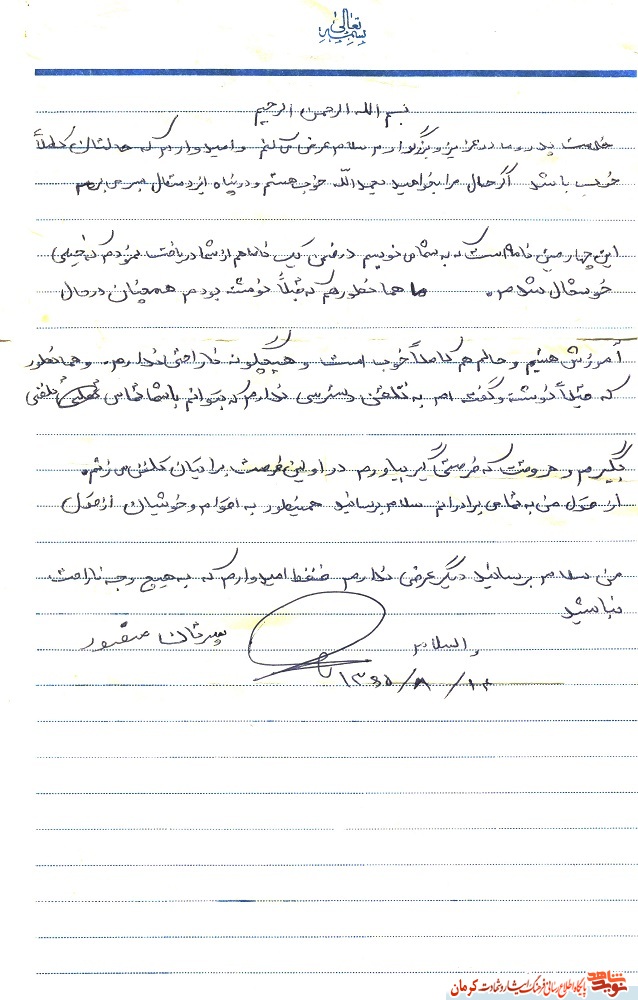 بسمه تعالی
بسم الله الرحمن الرحیم
خدمت پدر و مادر عزیز و بزرگوارم سلام عرض می کنم و امیدوارم که حالتان کاملاً
خوب باشد اگر حال مرا بخواهید بحمدالله خوب هستم و در پناه ایزد متعال بسر می برم
این چهارمین نامه است که به شما می نویسم در ضمن یک نامه هم از شما دریافت نمودم که خیلی
خوشحال شدم. ما همانطور هم که قبلاً نوشته بودم همچنان در حال
آموزش هستیم و حالم هم کاملاً خوب است و هیچگونه ناراحتی ندارم. و همانطور
که قبلاً نوشته و گفته ام به تلفنی دسترسی ندارم که بتوانم با شما تماس تلفنی
بگیرم و هر وقت که فرصتی گیر بیاورم در اولین فرصت برایتان تلفن می زنم.
از قول من به تمامی برادرانم سلام برسانید همینطور به اقوام و خویشان از قول
من سلام برسانید دیگر عرضی ندارم فقط امیدوارم که به هیچ وجه ناراحت
نباشید
والسلام پسرتان منصور
۱۳۶۵/۸/۱۲
نوید شاهد پایگاه اطلاع رسانی فرهنگ ایثار و شهادت کرمان